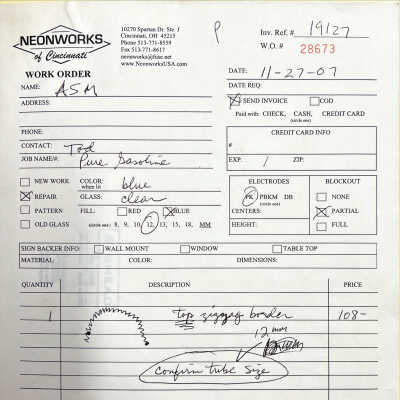 NEONWORKS
of Cincinnati
10270 Spartan Dr. Ste. J
Cincinnati, OH 45215
Phone 513-771-8559
Fax 513-771-8617
neonworks@fuse.net
www.NeonworksUSA.com
P
Inv. Ref.# 19127
W.O.# 28673
WORK ORDER
DATE: 11-27-07
NAME: ASM
DATE REQ:
ADDRESS:
SEND INVOICE COD
Paid with: CHECK, CASH, CREDIT CARD
(circle one)
PHONE:
CREDIT CARD INFO
CONTACT: Tod
#
JOB NAME#: Pure Gasoline
EXP. / ZIP:
NEW WORK COLOR: when lit blue
ELECTRODES BLOCKOUT
REPAIR GLASS: clear
PK PBKM DB (circle one) NONE
PATTERN FILL: RED BLUE
CENTERS: PARTIAL
OLD GLASS (circle one) 8, 9, 10, 12, 13, 15, 18, MM
HEIGHT: FULL
SIGN BACKER INFO: WALL MOUNT WINDOW TABLE TOP
MATERIAL: COLOR: DIMENSIONS:
QUANTITY DESCRIPTION PRICE
1 top zigzag border 108-
12 mm
confirm tube size